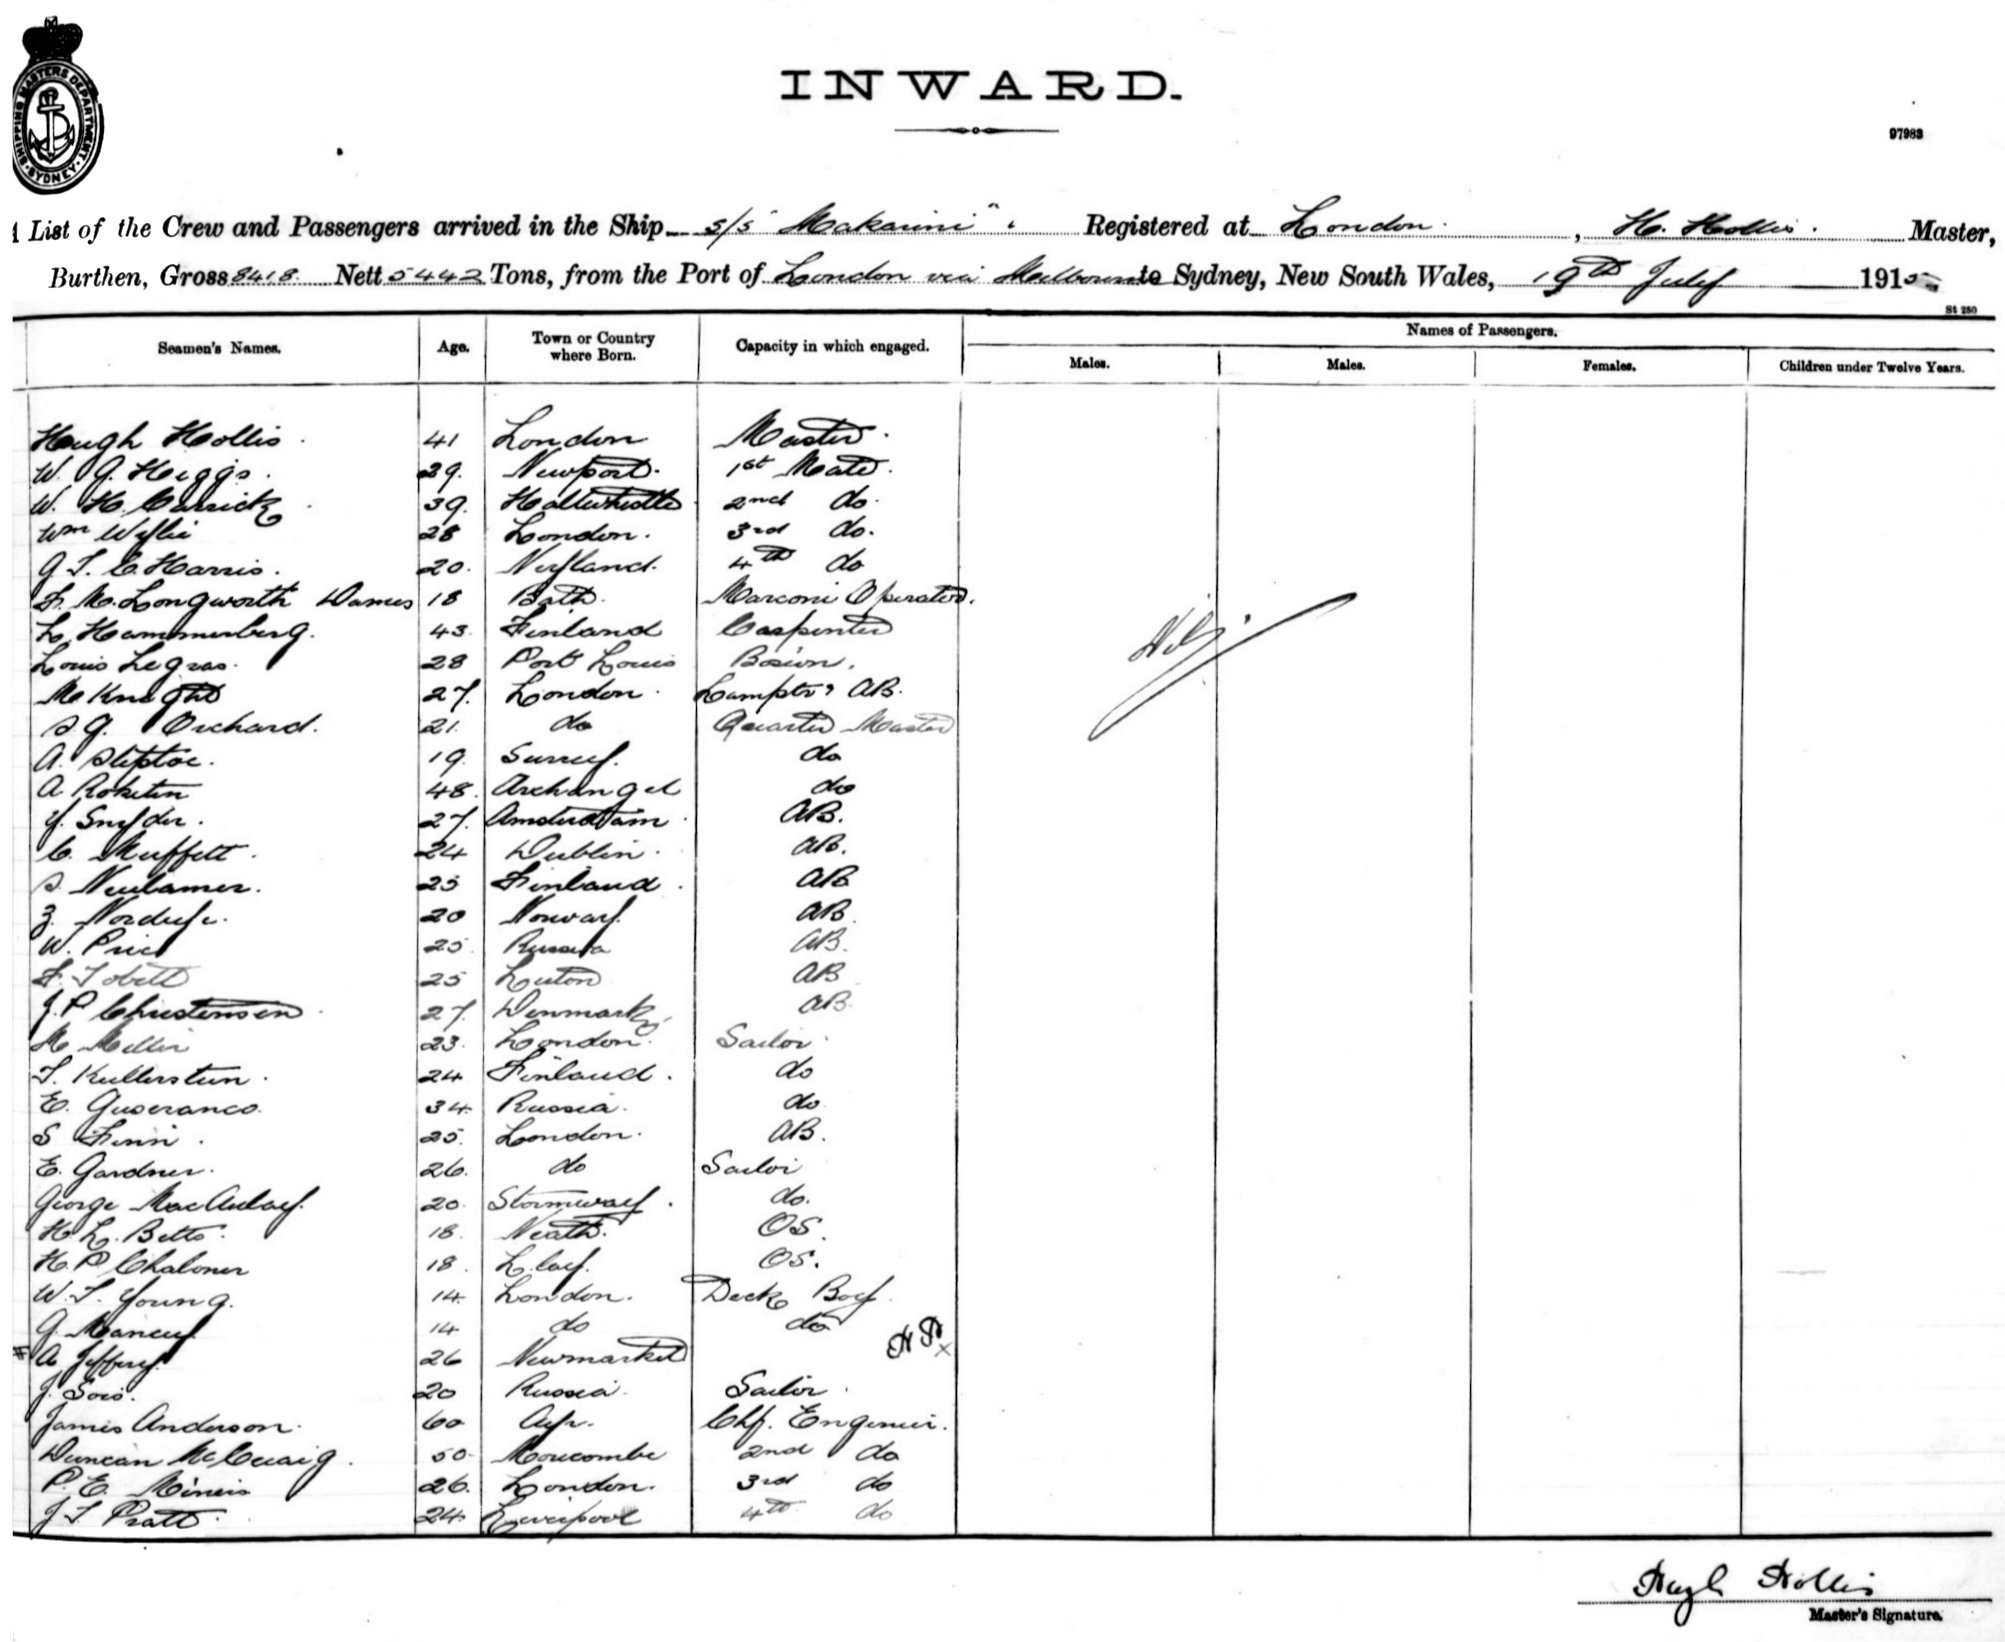 SHIPPING MASTERS DEPARTMENT. SYDNEY.
INWARD.
97983
List of the Crew and Passengers arrived in the Ship s/s "Makarini". Registered at London. , H. Hollis. Master,
Burthen, Gross 8418 Nett 5442 Tons, from the Port of London via Melbourne to Sydney, New South Wales, 19th July 1915
St 250
Seamen's Names. Age. Town or Country where Born. Capacity in which engaged. Names of Passengers.
Males. Males. Females. Children under Twelve Years.
Hugh Hollis. 41 London Master.
W. G. Higgs. 29. Newport. 1st Mate.
W. H. Carrick 39. Haltwhistle 2nd do.
Wm Wylie 28 London. 3rd do.
G. T. C. Harris. 20. Neyland. 4th do
F. M. Longworth Dames 18 Bath. Marconi Operator.
L. Hammerberg. 43. Finland Carpenter
Nil
Louis Legras. 28 Port Louis Bosun.
M Knight 27. London. Lamptr & AB.
S. G. Orchard. 21. do Quarter Master
A. Steptoe. 19. Surrey. do
A Roketin 48. Archangel do
Y. Snyder. 27. Amsterdam. AB.
C. Muffett. 24 Dublin. AB.
S. 25 Finland. AB
Z. 20 Norway. AB.
W. Price 25. Russia AB.
F. Tobett 25 Luton AB
J. P Christensen 27. Denmark AB.
M Miller 23. London. Sailor.
T. Kullerstein. 24 Finland. do
E. 34. Russia. do.
S Finn. 25. London. AB.
E. Gardner. 26. do Sailor
George MacAulay. 20. Stornway. do.
H. L. Betts. 18. Neath. OS.
H. P Chaloner 18. OS.
W. T. Young. 14. London. Deck Boy.
G. Mancey. 14 do do
A Jeffery. 26 Newmarket
J. Sois. 20 Russia. Sailor.
James Anderson. 60 Ayr. Chf. Engineer.
Duncan McCuaig. 50. Morecombe 2nd do
P. E. 26. London. 3rd do
J T Pratt. 24. Liverpool 4th do
Hugh Hollis
Master's Signature.